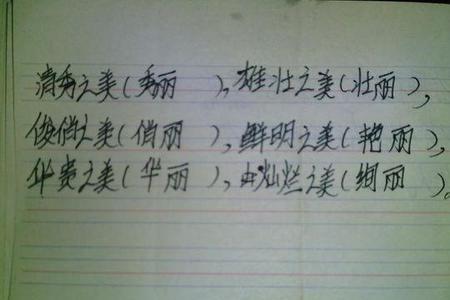 清秀之美(秀丽 ),雄壮之美(壮丽 ),
俊俏之美(俏丽 ),鲜明之美(艳丽 ),
华贵之美(华丽 ),灿烂之美(绚丽 )。